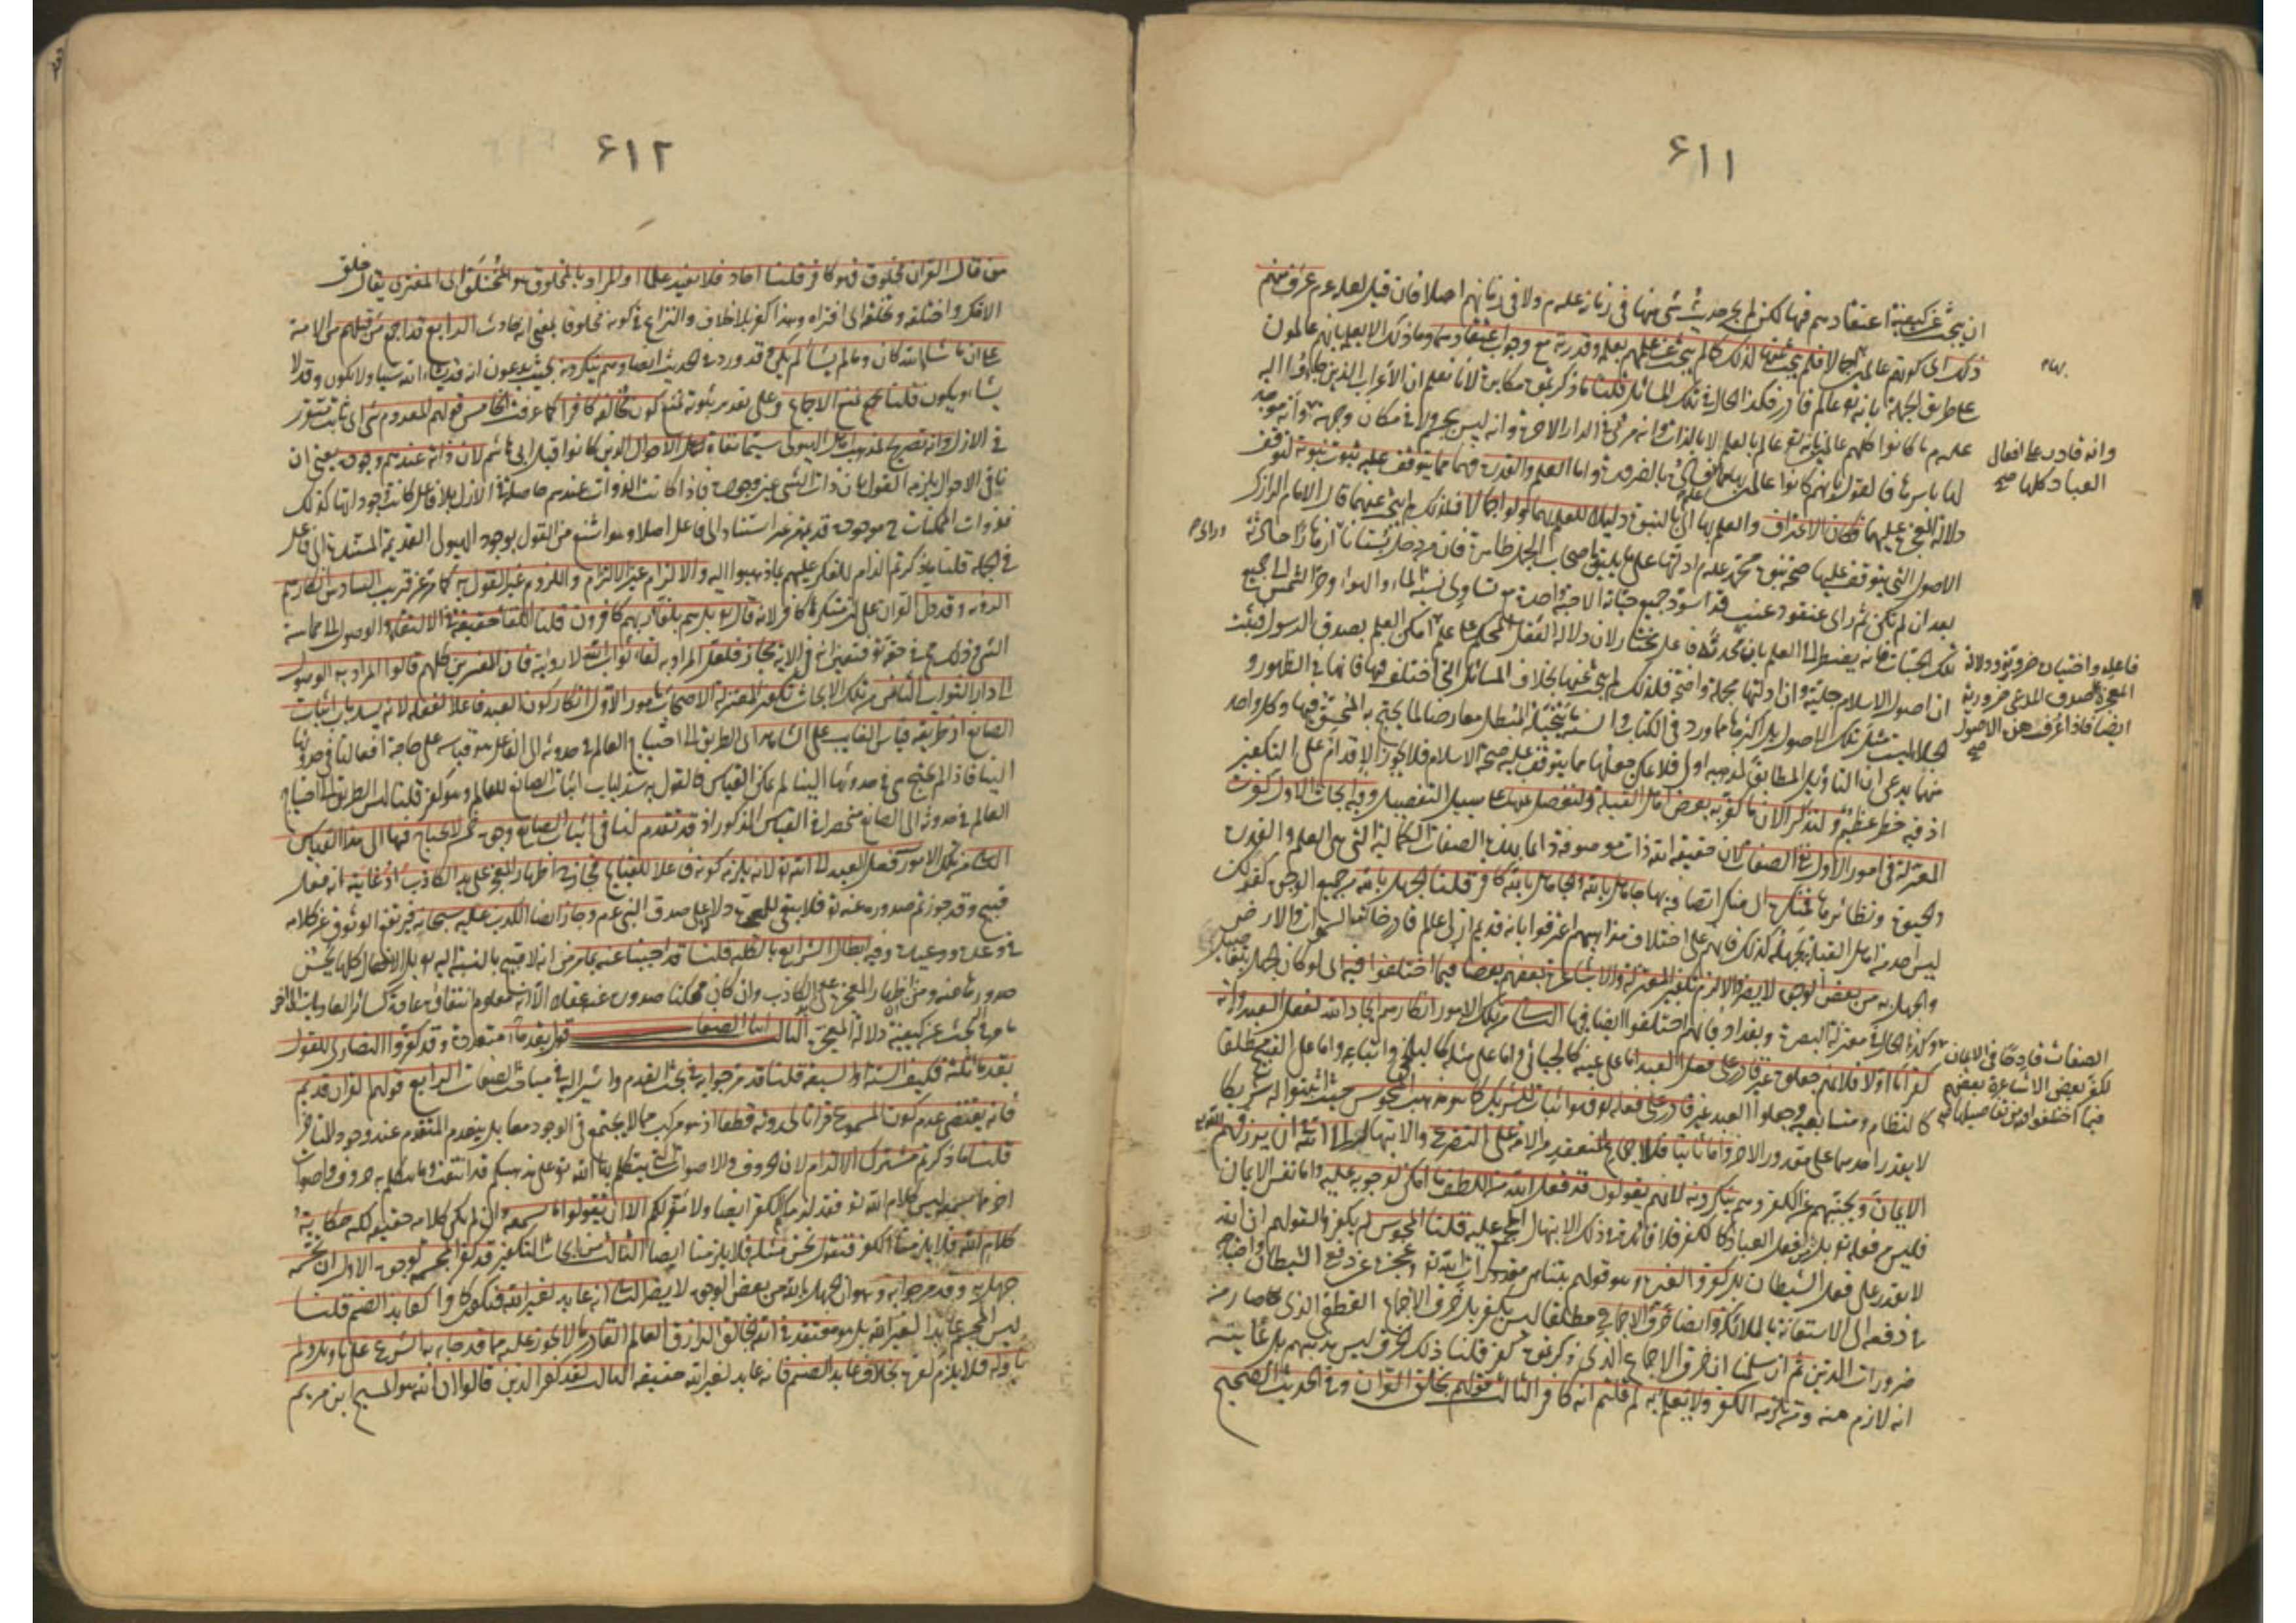 ٦١١
ان يبحث عن كيفية اعتقادهم فيها لكن لم يجر حديث شئ منها في زمانه عليه م ولا في زمانهم اصلا فان قيل لعله عم عرف منهم
ذلك اى كونهم عالمين بها اجمالا فلم يبحث عنها لذلك كما لم يبحث عن علمهم بعلمه وقدرته مع وجوب اعتقادهما وما ذلك الا لعلمه بانهم عالمون
على طريق الجملة بانه تع عالم قادر فكذا الحال في تلك المسائل قلنا ما ذكرتموه مكابرة لانا نعلم ان الاعراب الذين جاؤا اليه
عليه م ما كانوا كلهم عالمين بانه تع عالم بالعلم لا بالذات وانه مرئى في الدار الاخرة وانه ليس بجسم ولا في مكان وجهة وانه موجد
وانه قادر على افعال
العباد كلها صح
لها باسرها فالقول بانهم كانوا عالمين بها مما علم فساده بالضرورة واما العلم والقدرة فهما مما يتوقف عليه ثبوت نبوته لتوقف
دلالة المعجزة عليهما فكان الاعتراف والعلم بها اى بالنبوة دليلا للعلم بهما ولو اجمالا فلذلك لم يبحث عنهما قال الامام الرازى
الاصول التى يتوقف عليها صحة نبوة محمد عليه م ادلتها على ما يليق باصحاب الجمل ظاهرة فان من دخل بستانا ورأى ازهارا حادثة
بعد ان لم تكن ثم راى عنقود عنب قد اسود جميع حباته الا حبة واحدة مع تساوى نسبة الماء والهواء وحر الشمس الى جميع
تلك الحبات فانه يضطر الى العلم بان محدثه فاعل مختار لان دلالة الفعل المحكم على علم
فاعله واختياره ضرورية ودلالة
المعجزة على صدق المدعى ضرورية
ايضا فاذا عرف هذه الاصول
صح
امكن العلم بصدق الرسول فثبت
ان اصول الاسلام جلية وان ادلتها مجملة واضحة فلذلك لم يبحث عنها بخلاف المسائل التى اختلف فيها فانها في الظهور و
الجلاء ليست مثل تلك الاصول بل اكثرها مما ورد في الكتاب والسنة ما يتخيله المبطل معارضا لما يحتج به المحق فيها وكل واحد
منهما يدعى ان التاويل المطابق لمذهبه اولى فلا يمكن جعلها مما يتوقف عليه صحة الاسلام فلا يجوز الاقدام على التكفير
اذ فيه خطر عظيم ولنذكر الان ما كفر به بعض اهل القبلة ولنفصل عنه على سبيل التفصيل وفيه ابحاث الاول كفرت
المعتزلة في امور الاول نفى الصفات لان حقيقة الله ذات موصوفة دائما بهذه الصفات الكمالية التى هى العلم والقدرة
والحيوة ونظائرها فمنكرها اى منكر اتصافه بها جاهل بالله والجاهل بالله كافر قلنا الجهل بالله من جميع الوجوه كفر لكن
ليس احد من اهل القبلة يجهله كذلك فانهم على اختلاف مذاهبهم اعترفوا بانه قديم ازلى عالم قادر خالق السموات والارض
والجهل به من بعض الوجوه لا يضر والا لزم تكفير المعتزلة والاشاعرة بعضهم بعضا فيما اختلفوا فيه اى لو كان الجهل بتفاصيل
الصفات قادحا في الايمان
لكفر بعض الاشاعرة بعضهم
فيما اختلفوا فيه من تفاصيلها صح
وكذا الحال في معتزلة البصرة وبغداد فانهم اختلفوا ايضا فيها الثانى من تلك الامور انكارهم ايجاد الله لفعل العبد وانه
كفر اما اولا فلانهم جعلوه غير قادر على فعل العبد اما على عينه كالجبائى واما على مثله كالبلخى واتباعه واما على القبح مطلقا
كالنظام ومتابعيه وجعلوا العبد غير قادر على فعله تع فهو اثبات للشريك كما هو مذهب المجوس حيث اثبتوا له شريكا
لا يقدر احدهما على مقدور الاخر واما ثانيا فللاجماع المنعقد من الامة على التضرع والابتهال الى الله ان يرزقهم
الايمان ويجنبهم عن الكفر وهم ينكرونه لانهم يقولون قد فعل الله من اللطف ما امكن لوجوبه عليه واما نفس الايمان
فليس فعله تع بل هو فعل العباد كالكفر فلا فائدة في ذلك الابتهال المجمع عليه قلنا المجوس لم يكفروا لقولهم ان الله
لا يقدر على فعل الشيطان بل كفروا لغيره وهو قولهم بتناهى مقدورات الله تع وعجزه عن دفع الشيطان واحتياجه
في دفعه الى الاستعانة بالملائكة وايضا خرق الاجماع مطلقا ليس بكفر بل خرق الاجماع القطعى الذى صار من
ضرورات الدين ثم ان سلمنا ان خرق الاجماع الذى ذكرتموه كفر قلنا ذلك الخرق ليس مذهبهم بل غايته
انه لازم منه ومن يلزمه الكفر ولا يعلم به لم قلتم انه كافر الثالث قولهم بخلق القران وفى الحديث الصحيح
٦١٢
من قال القران مخلوق فهو كافر قلنا احاد فلا يفيد علما او المراد بالمخلوق هو المختلق اى المفترى يقال خلق
الافك واختلقه وتخلقه اى افتراه وهذا كفر بلا خلاف والنزاع في كونه مخلوقا بمعنى انه حادث الرابع قد اجمع من قبلهم من الامة
على ان ما شاء الله كان وما لم يشأ لم يكن وقد ورد في الحديث ايضا وهم ينكرونه بحيث يدعون انه قد يشاء الله شيا ولا يكون وقد لا
يشاء ويكون قلنا نمنع الاجماع وعلى تقدير ثبوته نمنع كون مخالفه كافرا كما عرفت الخامس قولهم المعدوم شئ اى ثابت متقرر
في الازل وانه تصريح لمذهب اهل الهيولى سيما نفاة الاحوال الذين كانوا قبل ابى هاشم لان ذاته عندهم وجوده يعنى ان
نافى الاحوال يلزمه القول بان ذات الشئ عين وجوده فاذا كانت الذوات عندهم حاصلة في الازل بلا فاعل كانت وجوداتها كذلك
فذوات الممكنات ح موجودة قديمة من غير استناد الى فاعل اصلا وهو اشنع من القول بوجود الهيولى القديمة المستندة الى فاعل
في الجملة قلنا ما ذكرتم الزام للكفر عليهم بما ذهبوا اليه والالزام غير الالتزام واللزوم غير القول به كما مر عن قريب السادس انكارهم
الرؤية وقد دل القران على ان منكرها كافر لانه قال بل هم بلقاء ربهم كافرون قلنا اللقاء حقيقة في الالتقاء والوصول الى مماسة
الشئ وذلك مح في حقه تع فتعين انه في الاية مجاز فلعل المراد به لقاء ثواب الله لا رؤيته فان المفسرين كلهم قالوا المراد به الوصول
الى دار الثواب الثانى من تلك الابحاث تكفير المعتزلة الاصحاب بامور الاول انكار كون العبد فاعلا لفعله لانه يسد باب اثبات
الصانع اذ طريقه قياس الغايب على الشاهد اى الطريق الى احتياج العالم في حدوثه الى الفاعل هو قياسه على حاجة افعالنا في حدوثها
الينا فاذا لم يحتج هى في حدوثها الينا لم يمكن القياس فالقول به سد لباب اثبات الصانع للعالم وهو كفر قلنا ليس الطريق الى احتياج
العالم في حدوثه الى الصانع منحصرا في القياس المذكور اذ قد تقدم لنا في اثبات الصانع وجوه خمسة لا يحتاج فيها الى هذا القياس
الثانى من تلك الامور فعل العبد الى الله تع لانه يلزمه كونه فاعلا للقبايح فجاز ح اظهار المعجزة على يد الكاذب اذ غايته انه فعل
قبيح وقد جوزتم صدوره عنه تع فلا يبقى للمعجزة دلالة على صدق النبى عم وجاز ايضا الكذب عليه سبحانه فيرتفع الوثوق عن كلامه
في وعده ووعيده وفيه ابطال الشرايع بالكلية قلنا قد اجبنا عنه بما مر من انه لا قبيح بالنسبة اليه تع بل الافعال كلها يحسن
صدورها عنه ومن اظهار المعجزة على يد الكاذب وان كان ممكنا صدوره عنه عقلا الا انه معلوم انتفاؤه عادة كسائر العاديات الاخر
ما مر في البحث عن كيفية دلالة المعجزة الثالث اثبات الصفات قول بقدماء متعددة وقد كفروا النصارى للقول
بقدماء ثلثة فكيف الستة او السبعة قلنا قد مر جوابه في بحث القدم واشير اليه في مباحث الصفات الرابع قولهم القران قديم
فانه يقتضى عدم كون المسموع قرانا لحدوثه قطعا اذ هو مركب مما لا يجتمع في الوجود معا بل ينعدم المتقدم عند وجود المتاخر
قلنا ما ذكرتم مشترك الالزام لان الحروف والاصوات التى يتكلم بها الله تع على مذهبكم قد انتفت وما نتكلم به حروف واصوات
اخر فما نسمعه ليس كلام الله تع فقد لزمكم الكفر ايضا ولا مفر لكم الا ان تقولوا ما نسمعه وان لم يكن كلامه حقيقة لكنه حكاية
كلام الله فلا يلزمنا الكفر فنقول نحن مثله فلا يلزمنا ايضا الثالث من ابحاث التكفير قد كفر المجسمة لوجوه الاول ان تجسمه
جهل به وقد مر جوابه وهو ان الجهل بالله من بعض الوجوه لا يضر الثانى انه عابد لغير الله فيكون كافرا كعابد الصنم قلنا
ليس المجسم عابدا لغير الله بل هو معتقد في الله الخالق الرازق العالم القادر ما لا يجوز عليه مما قد جاء به الشرع على تاويل ولم
ياوله فلا يلزم كفره بخلاف عابد الصنم فانه عابد لغير الله حقيقة الثالث لقد كفر الذين قالوا ان الله هو المسيح ابن مريم